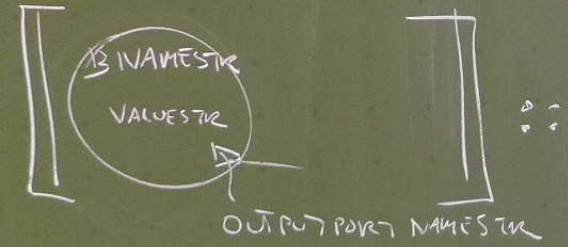 B INAMESTR
VALUESTR
OUTPUTPORT NAMESTR